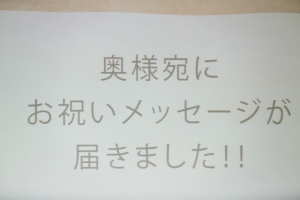 奥様宛に
お祝いメッセージが
届きました!!